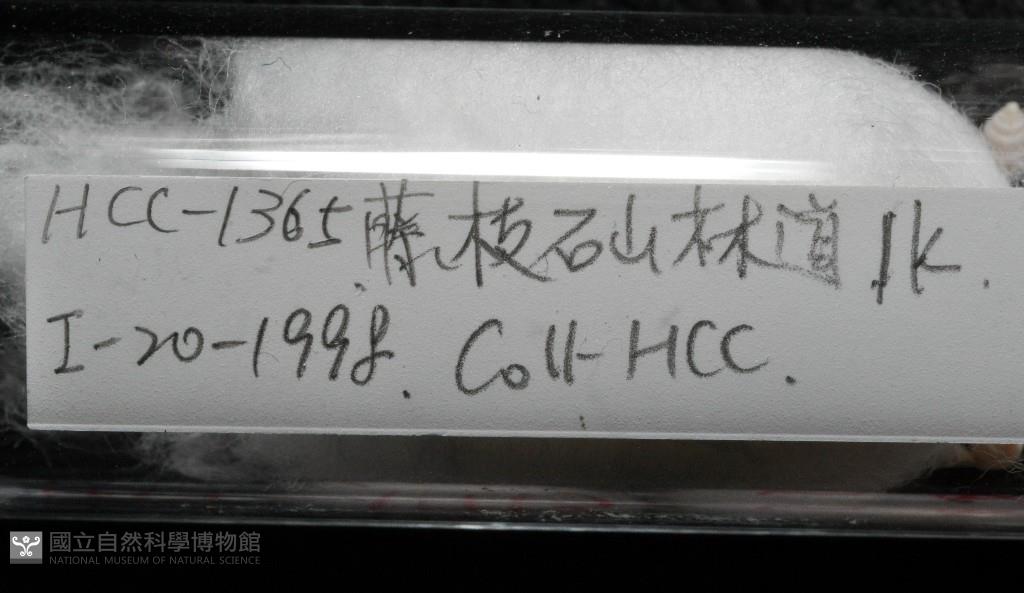 HCC-1365 藤枝石山林道 1k.
I-20-1998. Coll-HCC.
國立自然科學博物館
NATIONAL MUSEUM OF NATURAL SCIENCE